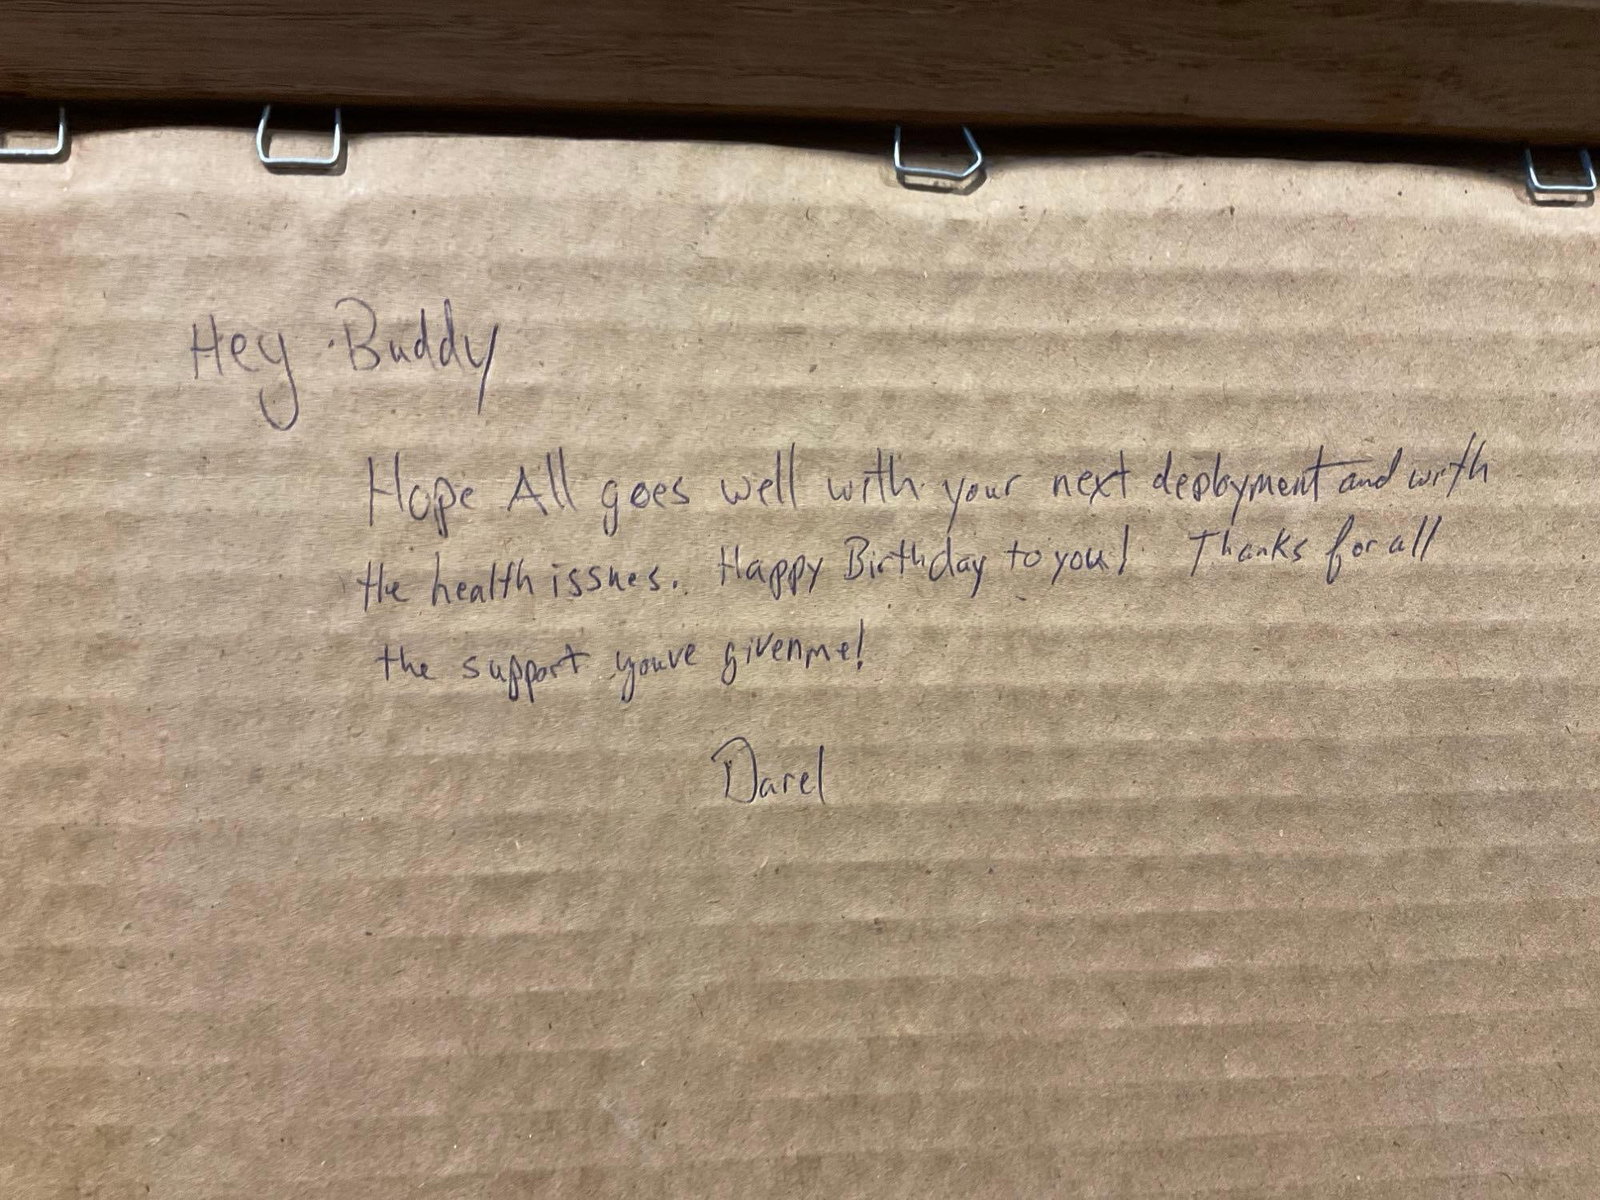 Hey Buddy
Hope All goes well with your next deployment and with
the health issues. Happy Birthday to you! Thanks for all
the support youve given me!
Darel